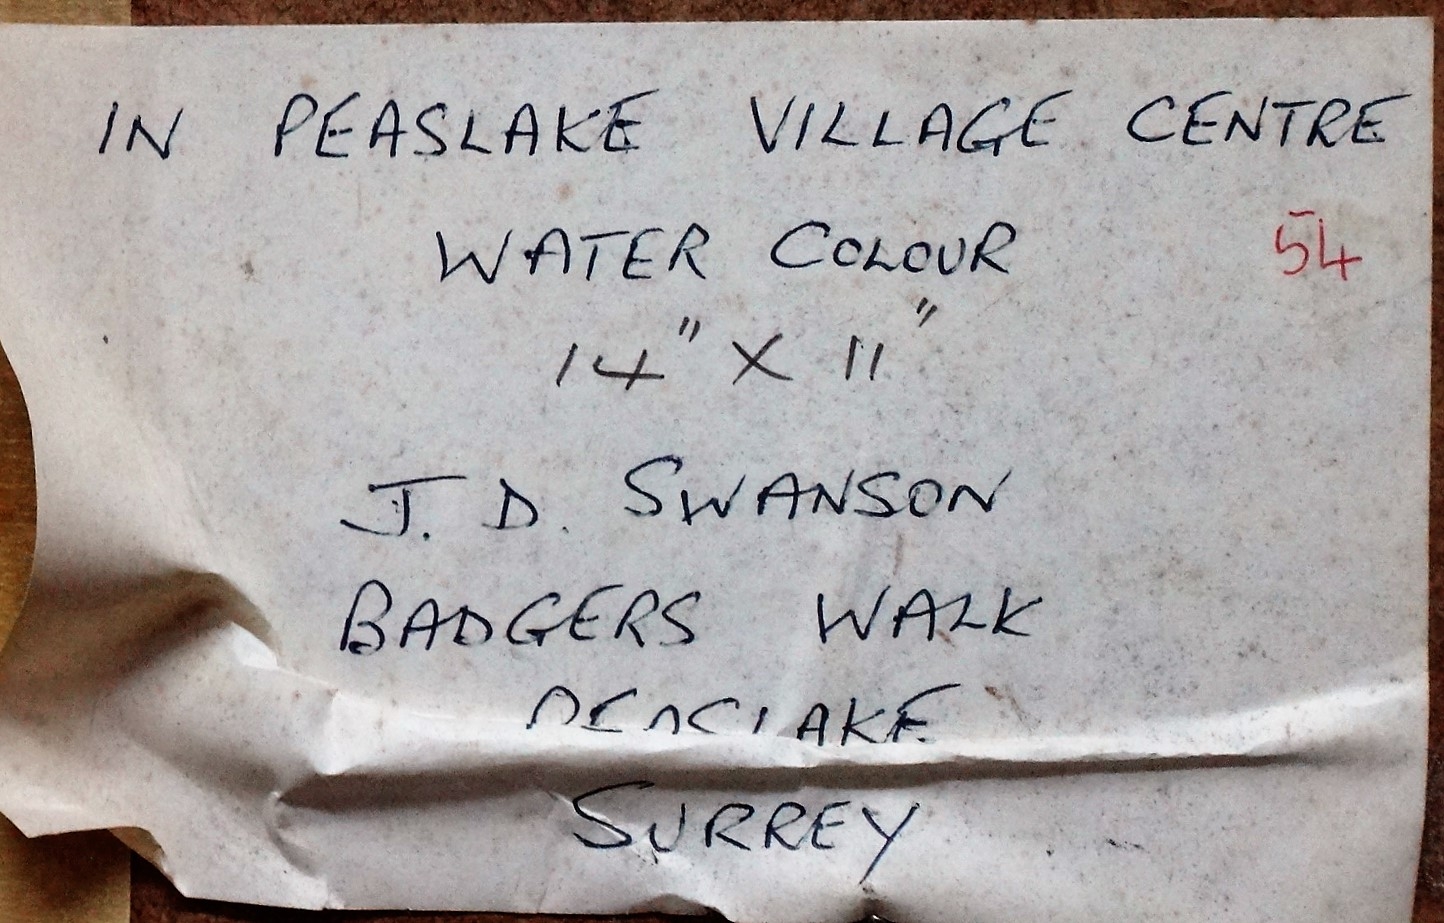 IN PEASLAKE VILLAGE CENTRE
WATER COLOUR
54
14" X 11"
J. D. SWANSON
BADGERS WALK
PEASLAKE
SURREY